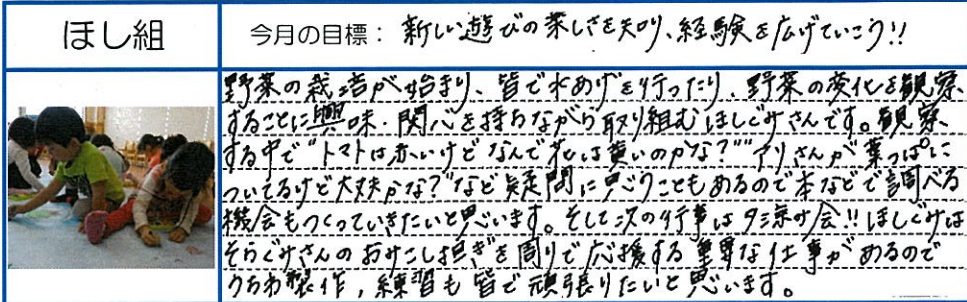 ほし組
今月の目標： 新しい遊びの楽しさを知り、経験を広げていこう!!
野菜の栽培が始まり、皆で水あげを行ったり、野菜の変化を観察
することに興味・関心を持ちながら取り組むほしぐみさんです。観察
する中で"トマトは赤いけどなんで花は黄いのかな？""アリさんが葉っぱに
ついてるけど大丈夫かな？"など疑問に思うこともあるので本などで調べる
機会もつくっていきたいと思います。そして次の行事は夕涼み会!!ほしぐみは
そらぐみさんのおみこし担ぎを周りで応援する重要な仕事があるので
うちわ製作，練習も皆で頑張りたいと思います。